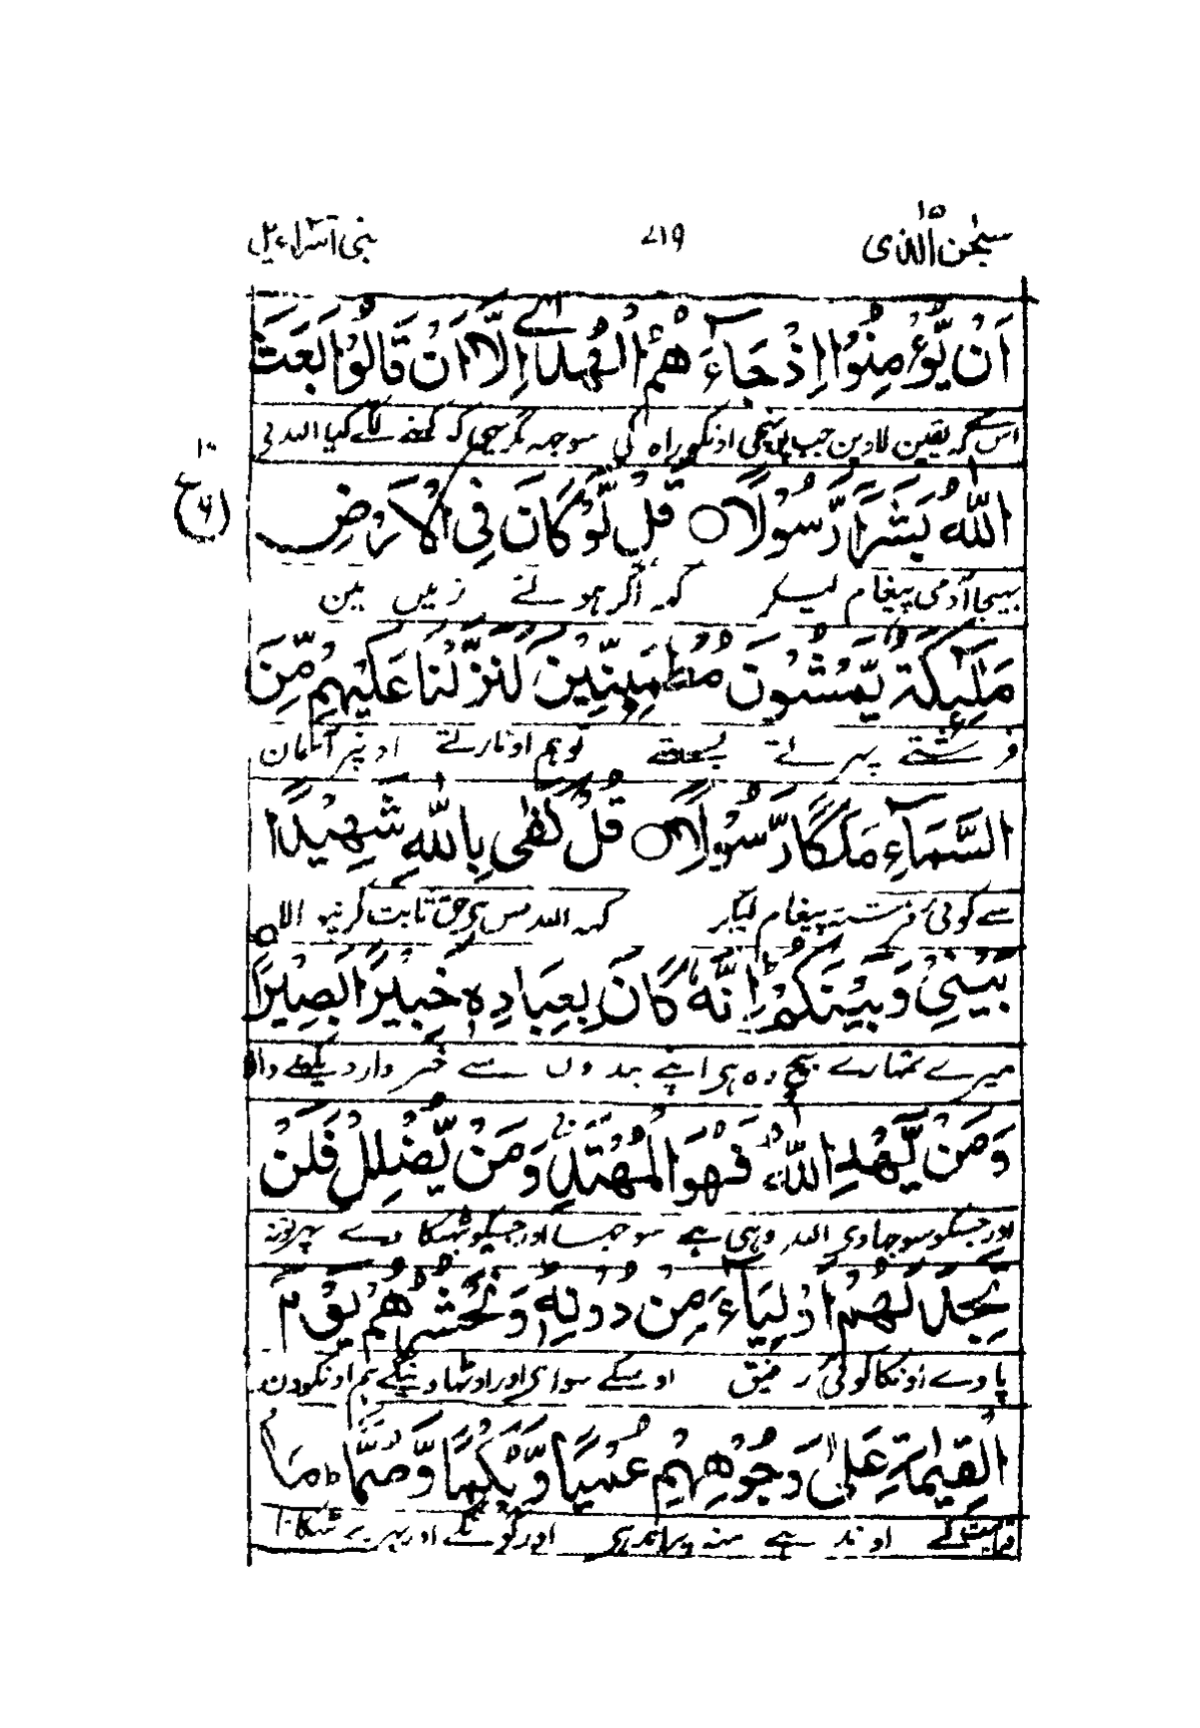 سبحن الذی ١٥ ٧١٩ بنی اسراءیل
اَنۡ یُّؤۡمِنُوۡۤا اِذۡ جَآءَهُمُ الۡهُدٰۤی اِلَّاۤ اَنۡ قَالُوۡۤا اَبَعَثَ
اس سے کہ یقین لاوین جب پہنچی اونکو راہ کی سوجھ مگر یہی کہ کہنے لگے کیا اللہ نی
اللّٰهُ بَشَرًا رَّسُوۡلًا ○ قُلۡ لَّوۡ كَانَ فِی الۡاَرۡضِ
١٠ ع ٦
بھیجا آدمی پیغام لیکر کہہ اگر ہوتے زمیں مین
مَلٰٓئِكَةٌ یَّمۡشُوۡنَ مُطۡمَئِنِّیۡنَ لَنَزَّلۡنَا عَلَیۡهِمۡ مِّنَ
فرشتے پہرتے بستے تو ہم اوتارتے اونپر آسمان
السَّمَآءِ مَلَكًا رَّسُوۡلًا ○ قُلۡ كَفٰی بِاللّٰهِ شَهِیۡدًۢا
سے کوئی فرشتہ پیغام لیکر کہہ اللہ بس ہی حق ثابت کرنیوالا
بَیۡنِیۡ وَبَیۡنَكُمۡ اِنَّهٗ كَانَ بِعِبَادِهٖ خَبِیۡرًۢا بَصِیۡرًا ○
میرے تمہارے بیچ وہ ہی اپنے بندوں سے خبردار دیکھنے والا
وَمَنۡ یَّهۡدِ اللّٰهُ فَهُوَ الۡمُهۡتَدِ وَمَنۡ یُّضۡلِلۡ فَلَنۡ
اور جسکو سوجھاوی اللہ وہی ہے سوجھا اور جسکو بھٹکا دے پھر تو نہ
تَجِدَ لَهُمۡ اَوۡلِیَآءَ مِنۡ دُوۡنِهٖ وَنَحۡشُرُهُمۡ یَوۡمَ
پاوے اونکا کوئی رفیق اوسکے سوا ہی اور اوٹھاوینگے ہم اونکو دن
الۡقِیٰمَةِ عَلٰی وُجُوۡهِهِمۡ عُمۡیًا وَّبُكۡمًا وَّصُمًّا مَا
قیامت کے اوندہے منہ پر اندہی اور گونگے اور بہرے ٹھکانا